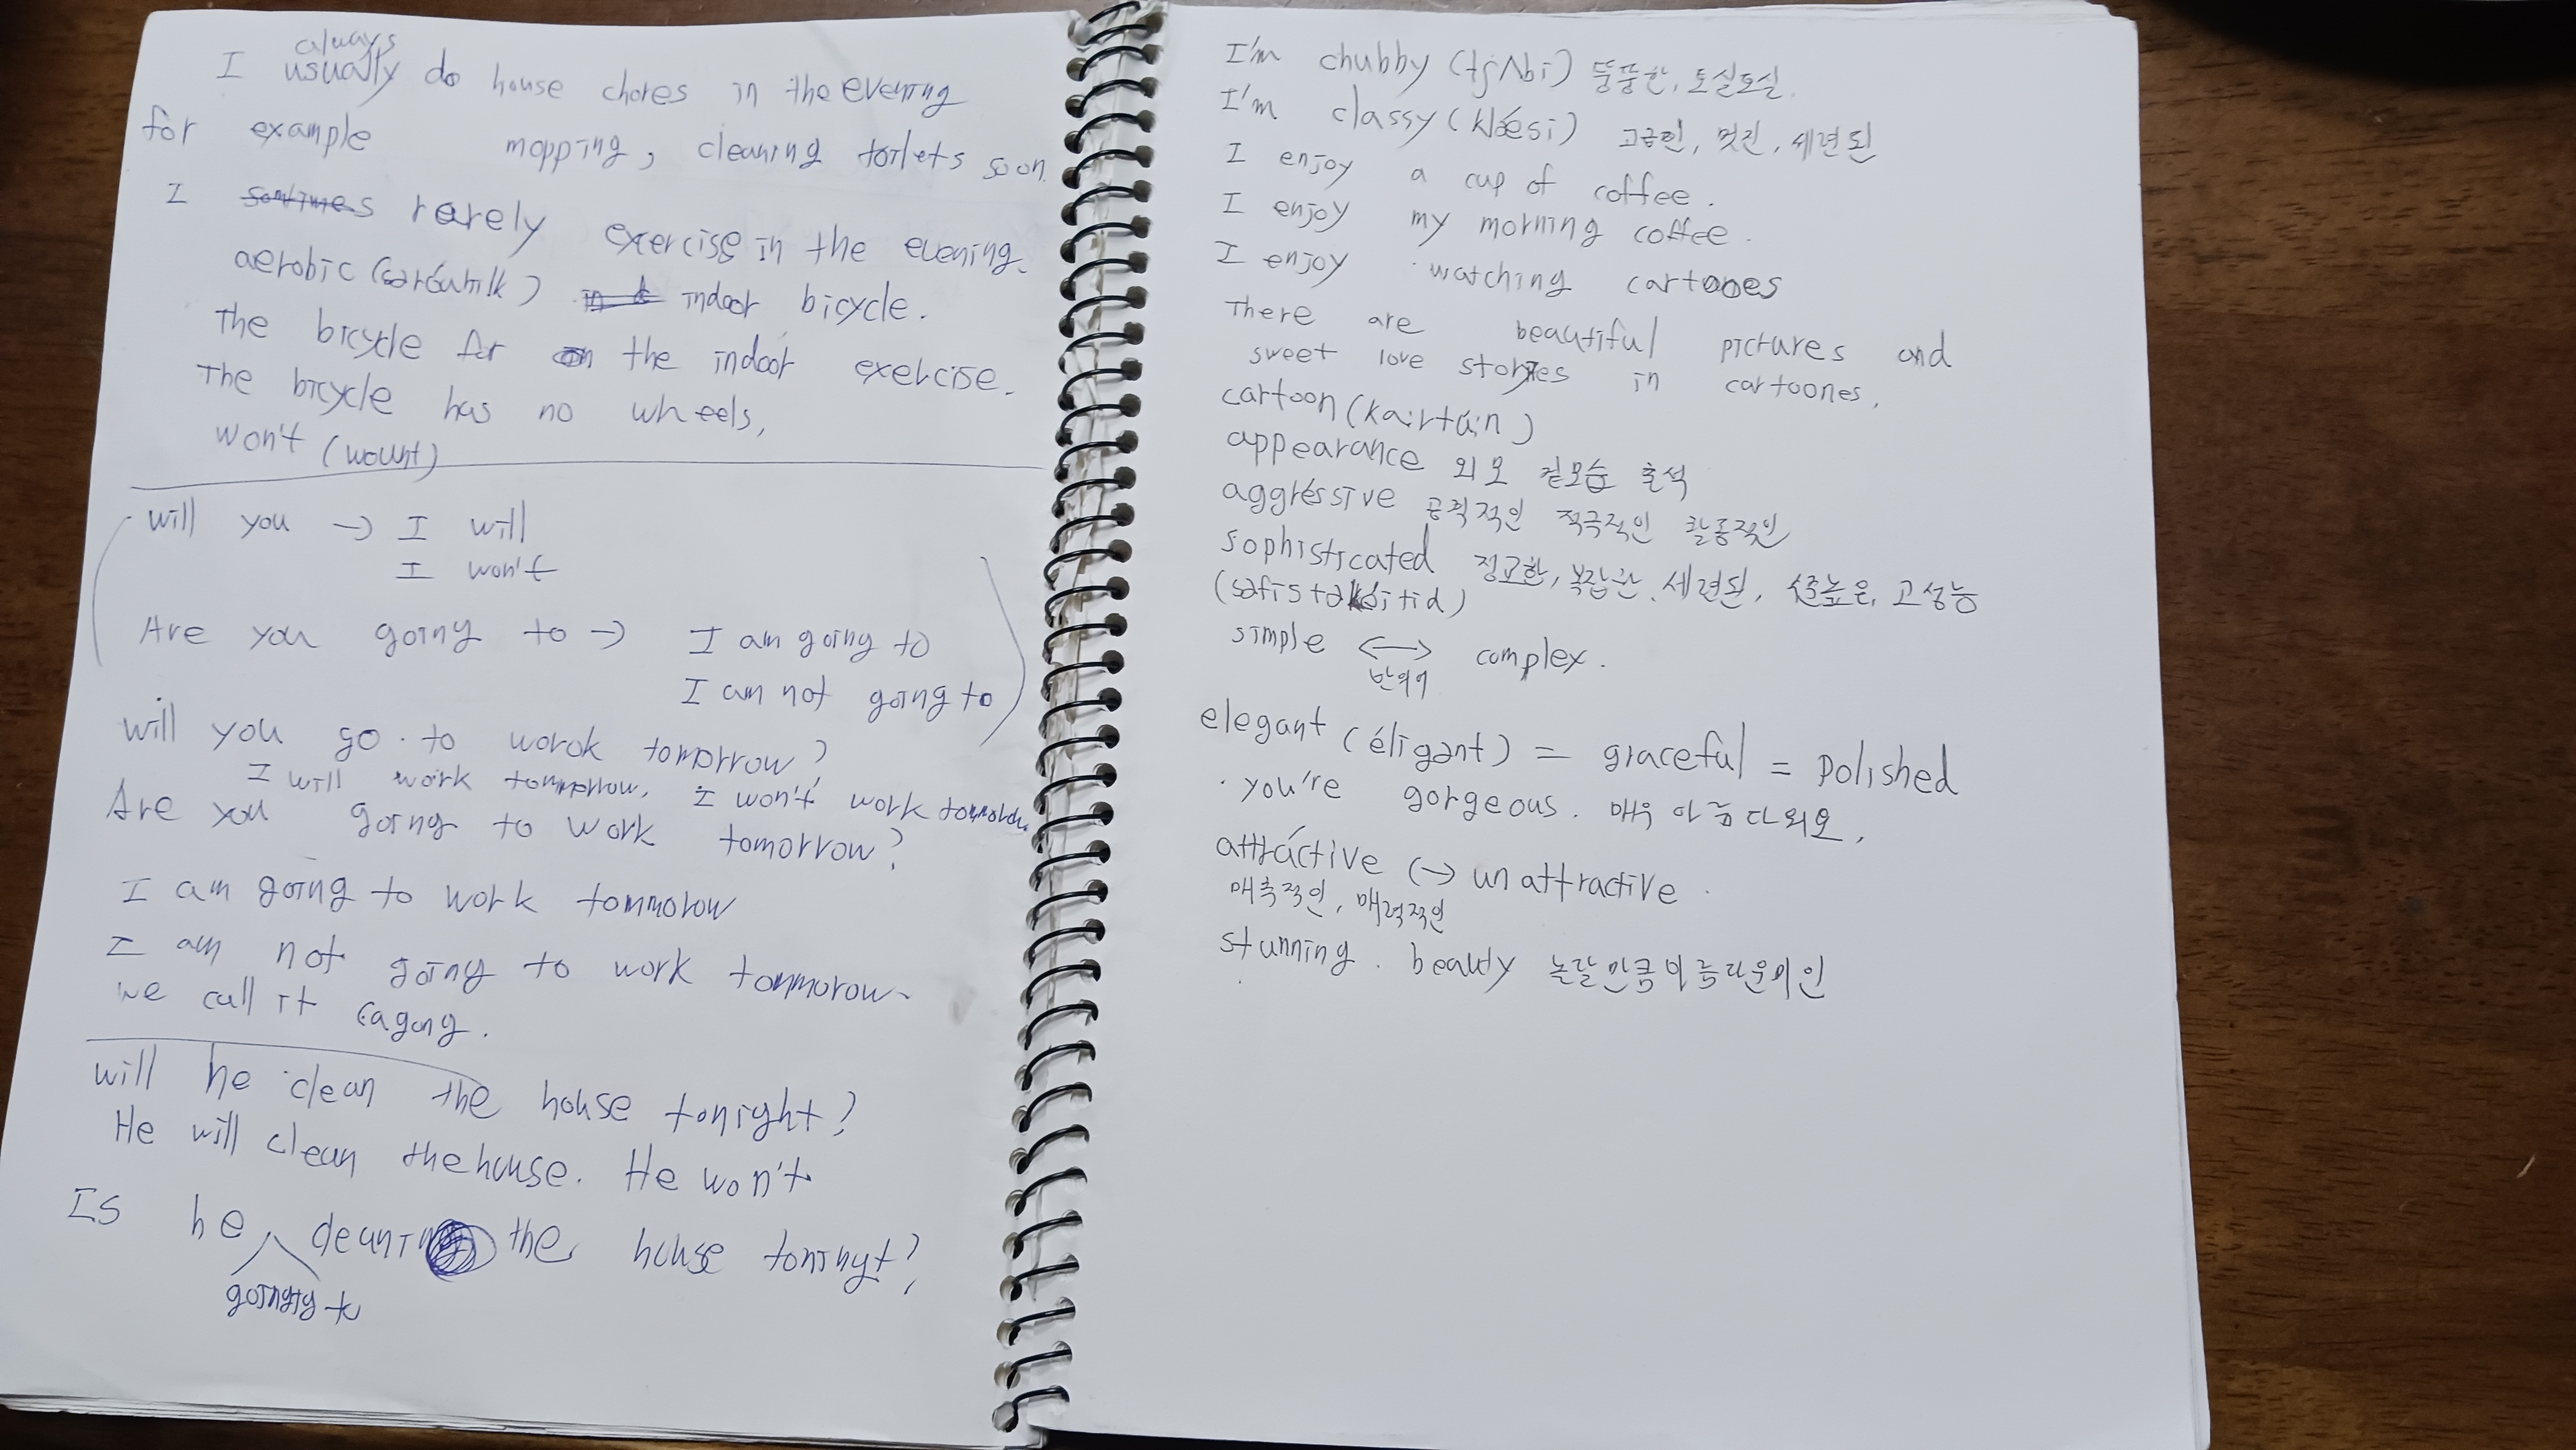 always
I usually do house chores in the evening
for example mopping, cleaning toilets soon.
I rarely exercise in the evening.
aerobic indoor bicycle.
The bicycle for the indoor exercise.
The bicycle has no wheels,
won't (wount)
will you → I will
I won't
Are you going to → I am going to
I am not going to
will you go to worok tomorrow?
I will work tomorrow, I won't work
Are you going to work tomorrow?
I am going to work tommorow
I am not going to work tommorow
we call it
will he clean the house tonight?
He will clean the house. He won't
Is he the house
to
I'm chubby (tʃʌbi) 뚱뚱한, 토실토실
I'm classy (klǽsi) 고급인, 멋진, 세련된
I enjoy a cup of coffee.
I enjoy my morning coffee.
I enjoy watching
There are beautiful pictures and
sweet love stories in cartoones.
cartoon (ka:rtú:n)
appearance 외모 겉모습 출석
aggréssive 공격적인 적극적인 활동적인
sophisticated 정교한, 복잡한, 세련된, 수준높은, 고성능

simple ↔ complex.
반의어
elegant (éligənt) = graceful = polished
you're gorgeous. 매우 아름다워요.
attráctive ↔ unattractive
매혹적인, 매력적인
stunning. beauty 놀랄만큼아름다운미인